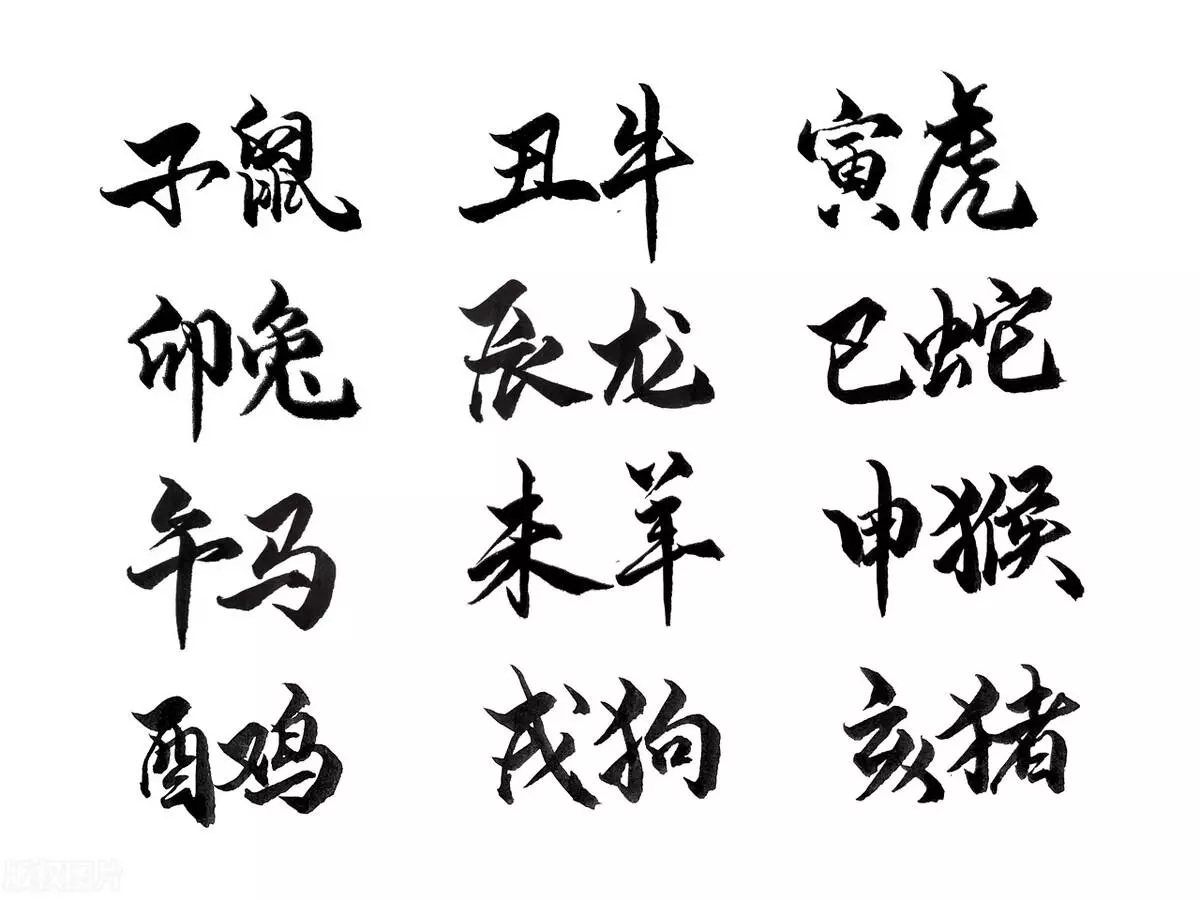 子鼠 丑牛 寅虎
卯兔 辰龙 巳蛇
午马 未羊 申猴
酉鸡 戌狗 亥猪
版权图片